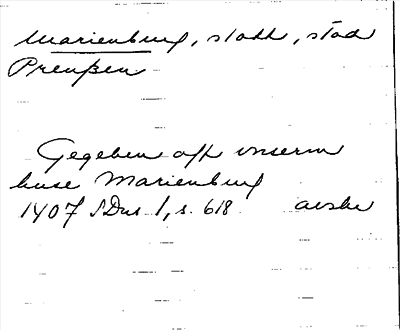 Marienburg, stadt, stad
Preußen
Gegeben off vnserm
huse Marienburg
1407 SDns. 1, s. 618 avskr